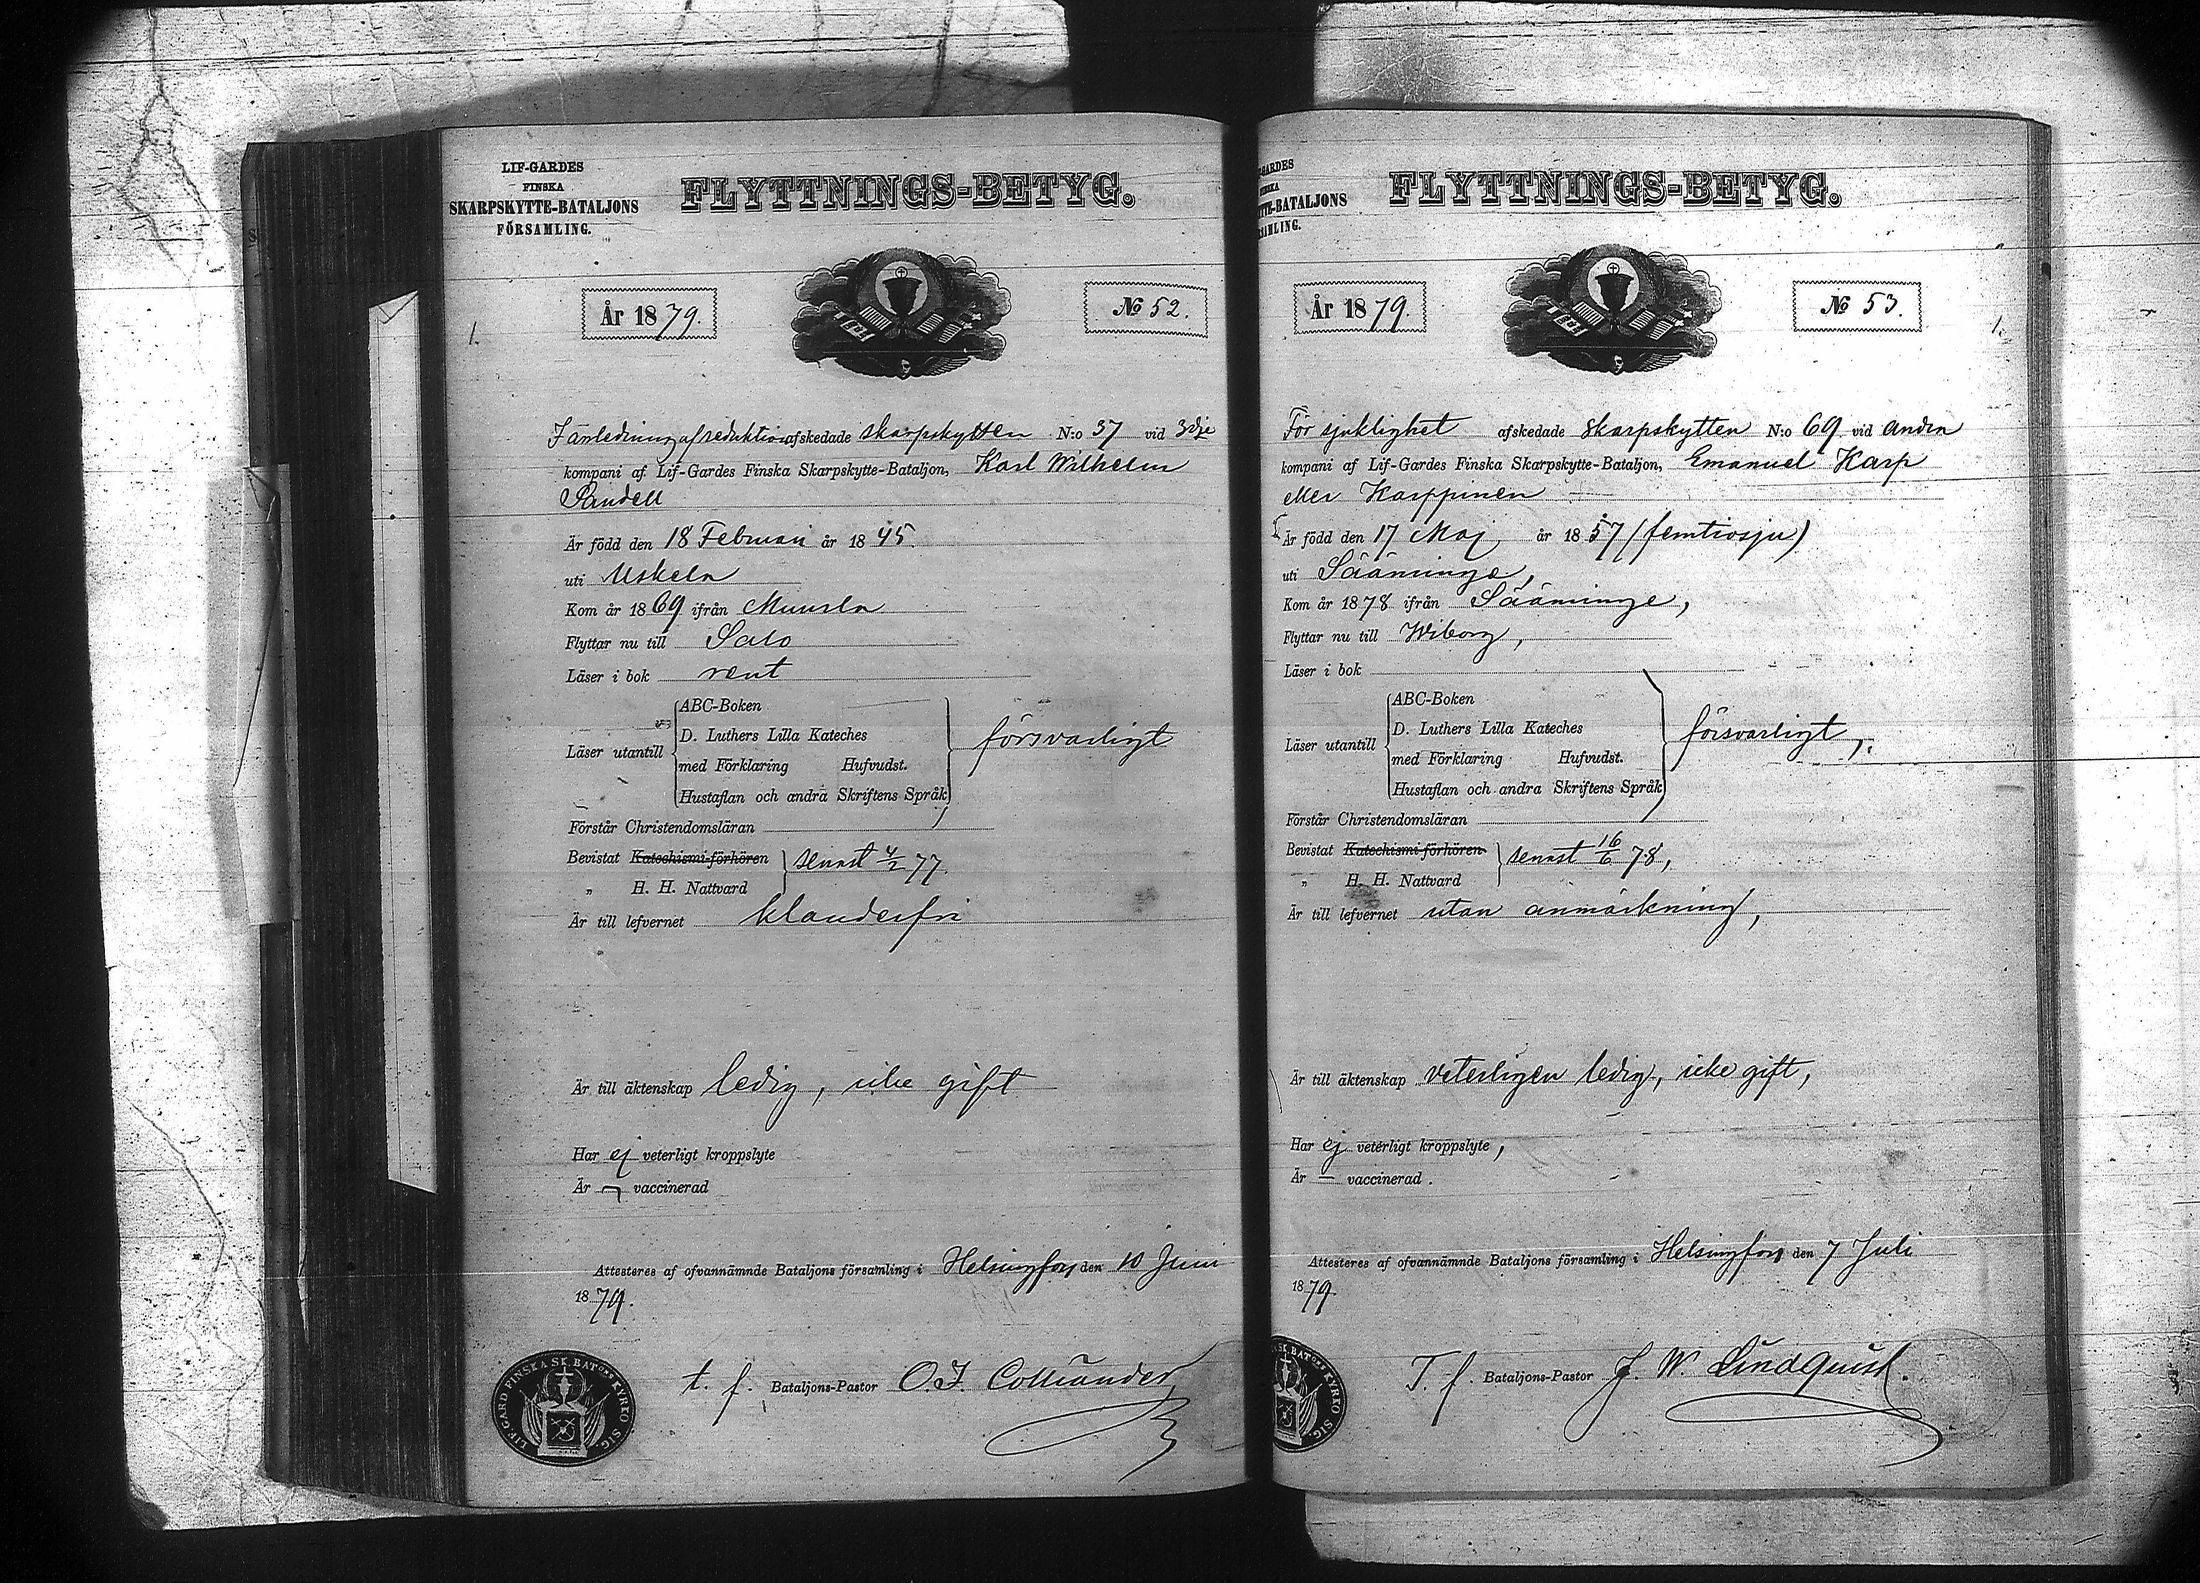 LIF-GARDES
FINSKA
SKARPSKYTTE-BATALJONS
FÖRSAMLING.
FLYTTNINGS-BETYG.
År 1879.
№ 52.
1.
I anledning af reduktion afskedade skarpskytten N:o 37 vid 3dje
kompani af Lif-Gardes Finska Skarpskytte-Bataljon, Karl Wilhelm
Sandell
Är född den 18 Februari år 1845.
uti Uskela
Kom år 1869 ifrån Muurla
Flyttar nu till Salo
Läser i bok rent
Läser utantill
ABC-Boken
D. Luthers Lilla Kateches
med Förklaring Hufvudst.
Hustaflan och andra Skriftens Språk
försvarligt
Förstår Christendomsläran
Bevistat Katechismi-förhören
„ H. H. Nattvard
senast 4/2 77.
Är till lefvernet klanderfri
Är till äktenskap ledig, icke gift
Har ej veterligt kroppslyte
Är — vaccinerad
Attesteres af ofvannämnde Bataljons församling i Helsingfors den 10 Juni
1879.
t. f. Bataljons-Pastor O. I. Colliander
LIF-GARD FINSKA SK. BAT:ONS KYRKO SIG.
-GARDES
FINSKA
TTE-BATALJONS
SAMLING.
FLYTTNINGS-BETYG.
År 1879.
№ 53.
1.
För sjuklighet afskedade skarpskytten N:o 69 vid andra
kompani af Lif-Gardes Finska Skarpskytte-Bataljon, Emanuel Karp
eller Karppinen
Är född den 17 Maj år 1857 (femtiosju)
uti Sääminge,
Kom år 1878 ifrån Sääminge,
Flyttar nu till Wiborg,
Läser i bok
Läser utantill
ABC-Boken
D. Luthers Lilla Kateches
med Förklaring Hufvudst.
Hustaflan och andra Skriftens Språk
försvarligt,
Förstår Christendomsläran
Bevistat Katechismi-förhören
„ H. H. Nattvard
senast 16/6 78,
Är till lefvernet utan anmärkning,
Är till äktenskap veterligen ledig, icke gift,
Har ej veterligt kroppslyte,
Är — vaccinerad.
Attesteres af ofvannämnde Bataljons församling i Helsingfors den 7 Juli
1879.
T. f. Bataljons-Pastor J. W. Lindquist.
SK. BAT:ONS KYRKO SIG.